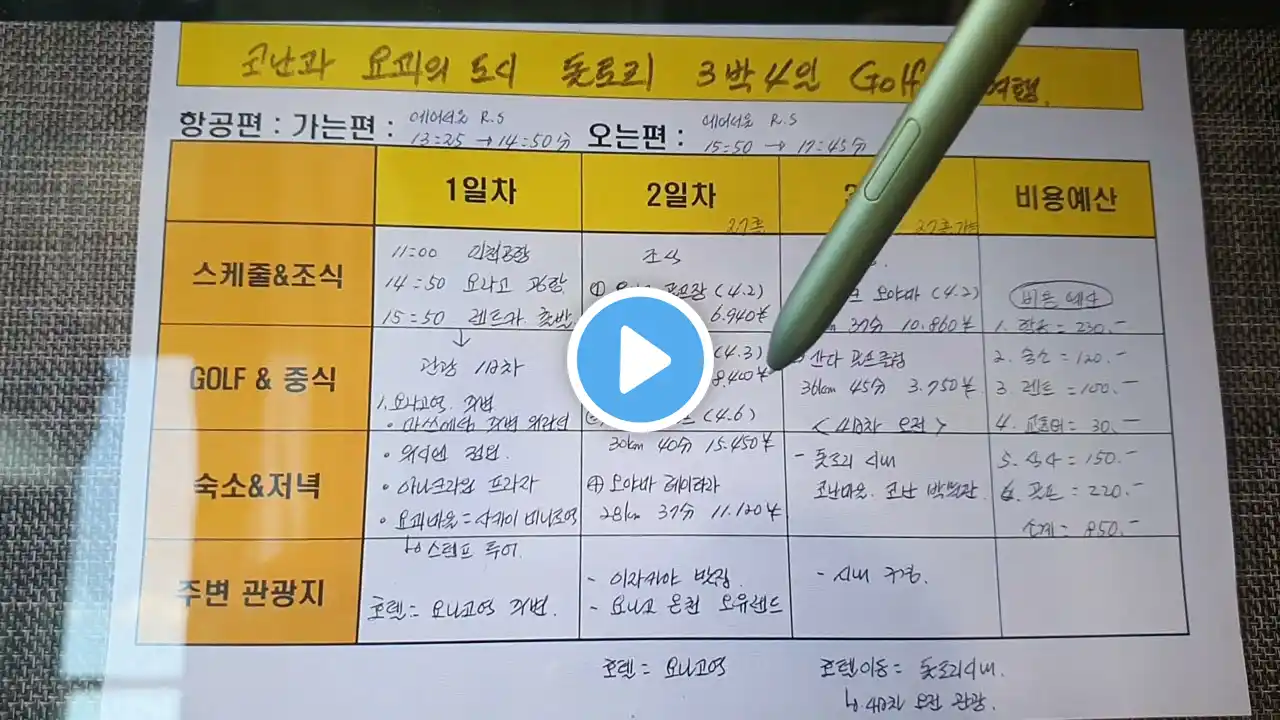 코난과 요괴의 도시 돗토리 3박4일 Golf 여행.
항공편 : 가는편 : 에어서울 R.S 13:25 → 14:50分 오는편 : 에어서울 R.S 15:50 → 17:45分
1일차 2일차 비용예산
27홀 27홀 가능
스케줄&조식
11:00 인천공항
14:50 요나고 공항
15:50 렌트카 출발
↓
관광 1일차
1. 요나고역 주변
조식
① 골프장 (4.2)
6.940¥
오야마 (4.2)
37分 10.860¥
비용 예산
1. 항공 = 230.-
2. 숙소 = 120.-
3. 렌트 = 100.-
4. 교통비 = 30.-
5. 식사 = 150.-
6. 골프 = 220.-
소계 = 850.-
GOLF & 중식
(4.3)
8.400¥
(4.6)
30km 40分 15.450¥
산다 골프클럽
36km 45分 3.750¥
< 4일차 오전 >
숙소&저녁
• 요괴마을 = 사카이 미나토역
↳ 스탬프 투어.
④ 오야마 레이타라
28km 37分 11.120¥
- 돗토리 시내
코난마을. 코난 박물관.
주변 관광지
호텔 = 요나고역 주변.
- 이자카야 맛집
- 요나고 온천 오유랜드
- 시내 구경.
호텔 = 요나고역
호텔이동 = 돗토리시내.
↳ 4일차 오전 관광.